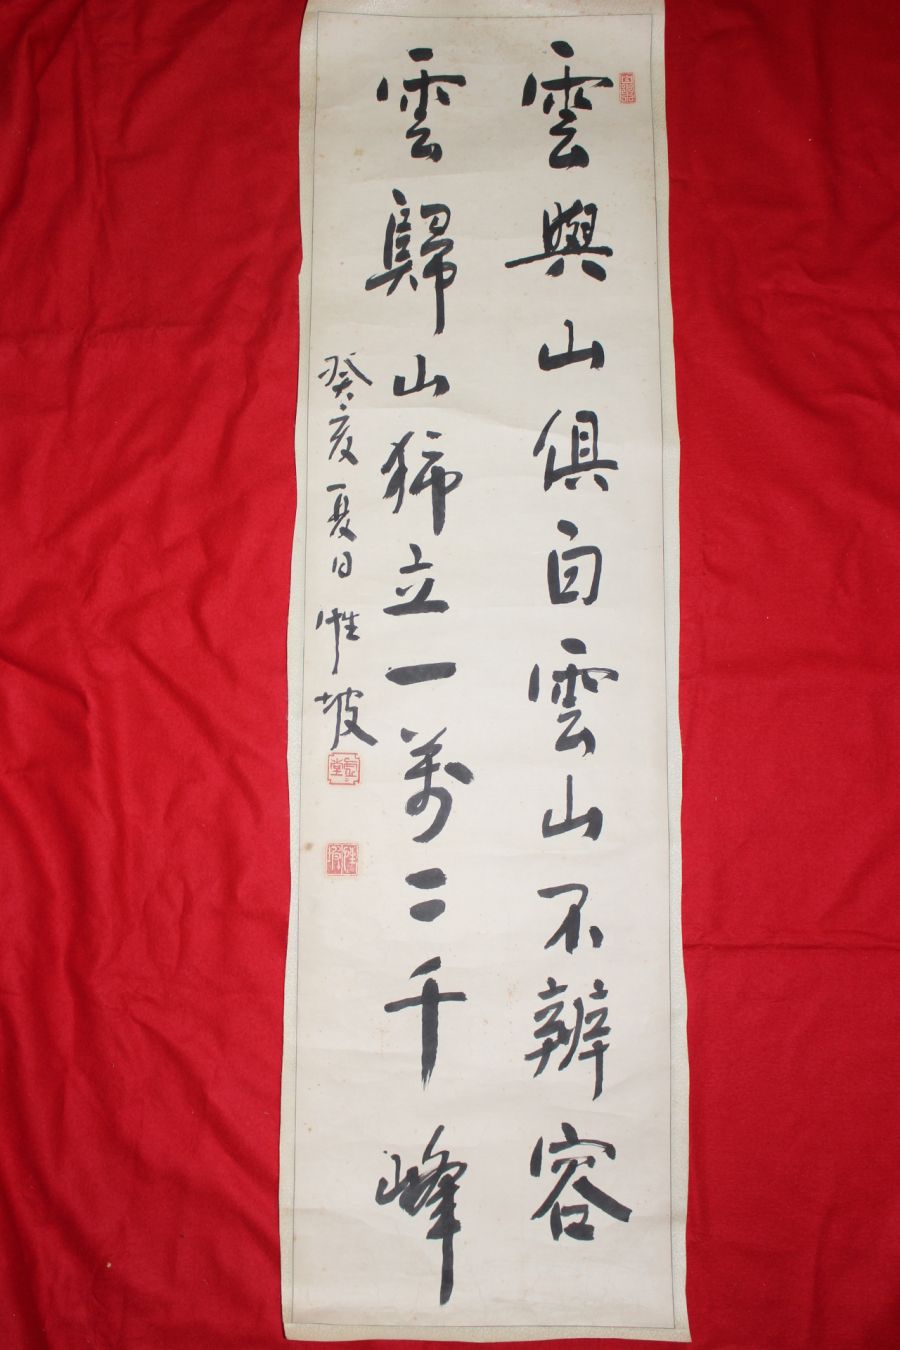 雲與山俱白雲山不辨容
雲歸山獨立一萬二千峰
癸亥夏日惟坡